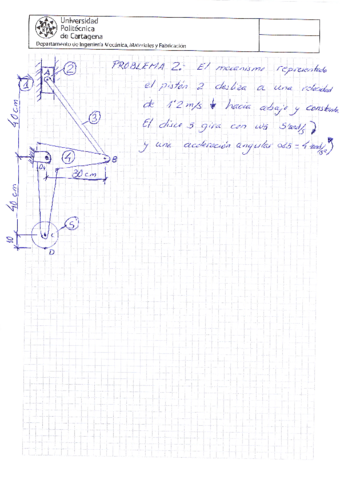 Universidad
Politécnica
de Cartagena
Departamento de Ingeniería Mecánica, Materiales y Fabricación
PROBLEMA 2: El mecanismo representado
el pistón 2 desliza a una velocidad
de 1'2 m/s ↓ hacia abajo y constante
El disco 5 gira con ω5 5 rad/s
y una aceleración angular α5 = 4 rad/s²
A
2
1
40 cm
3
4
B
30 cm
40 cm
5
C
10
D